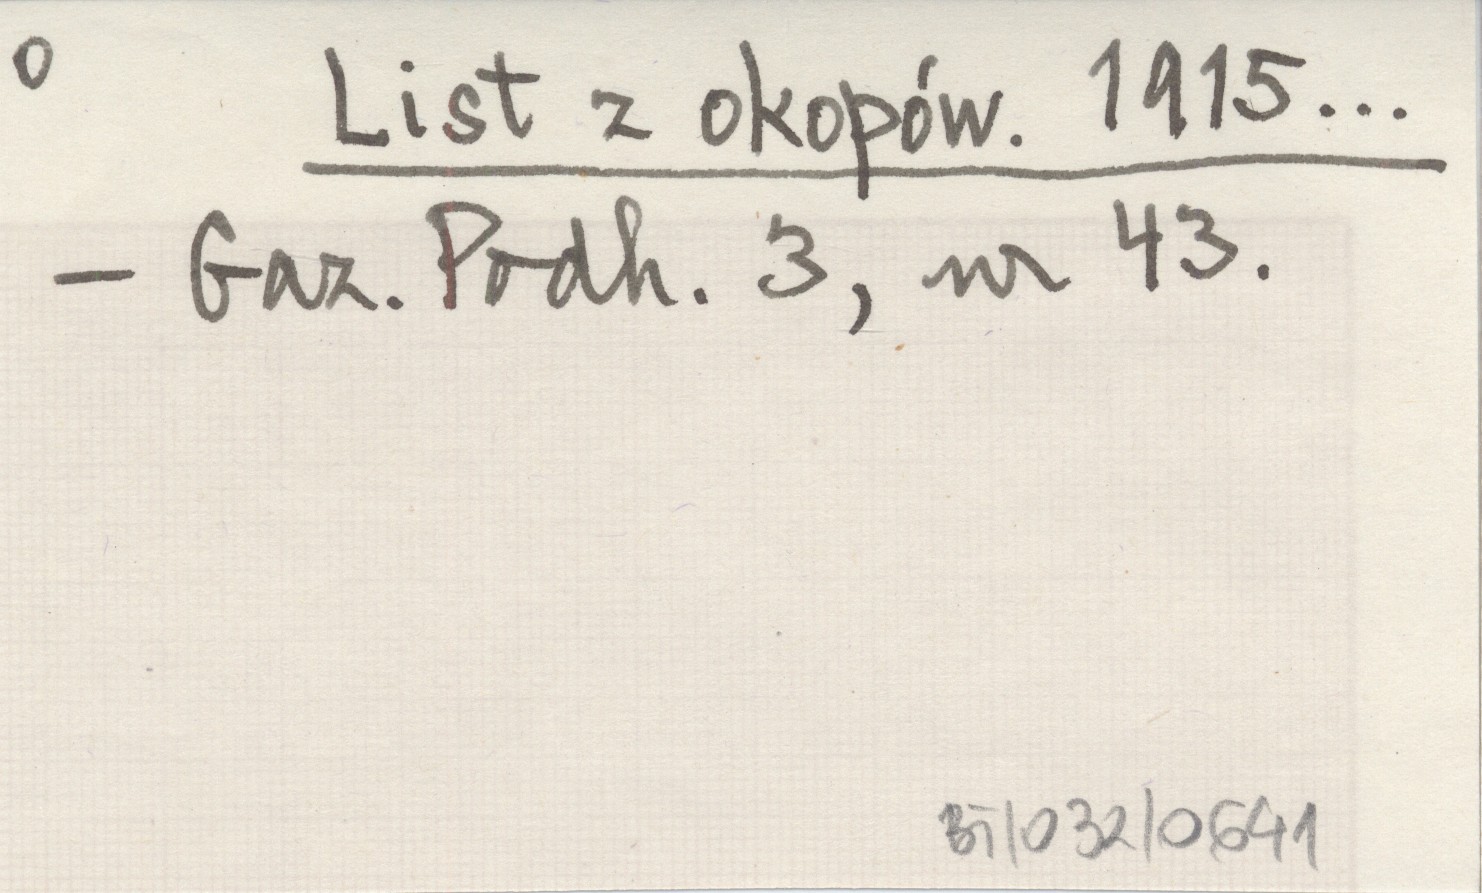 o List z okopów. 1915...
— Gaz. Podh. 3, nr 43.
BT/032/0641